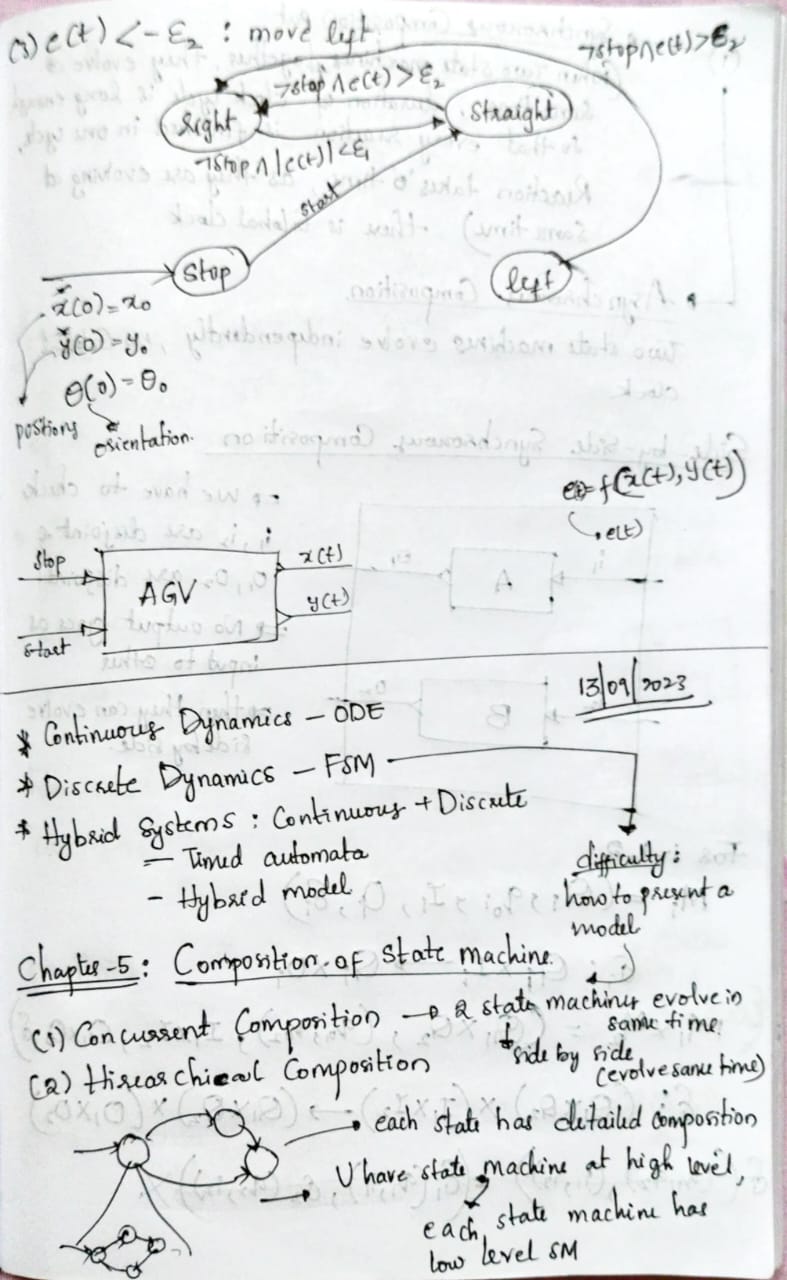 (3) e(t) < -ε₂ : move left
¬stop∧e(t)>ε₂
¬stop∧e(t)>ε₂
Right
Straight
¬stop∧|e(t)|<ε₁
start
Stop
left
ẋ(0)=x₀
ẏ(0)=y₀
θ(0)=θ₀
positions
orientation.
e(t)=f(x(t),y(t))
e(t)
Stop
AGV
x(t)
y(t)
start
13/09/2023
* Continuous Dynamics – ODE
* Discrete Dynamics – FSM
* Hybrid Systems : Continuous + Discrete
– Timed automata
– Hybrid model
difficulty :
how to present a
model
Chapter-5 : Composition of State machine.
(1) Concurrent Composition → 2 state machines evolve in
same time
side by side
(evolve same time)
(2) Hierarchical Composition
each state has detailed composition
U have state machine at high level,
each state machine has
low level SM